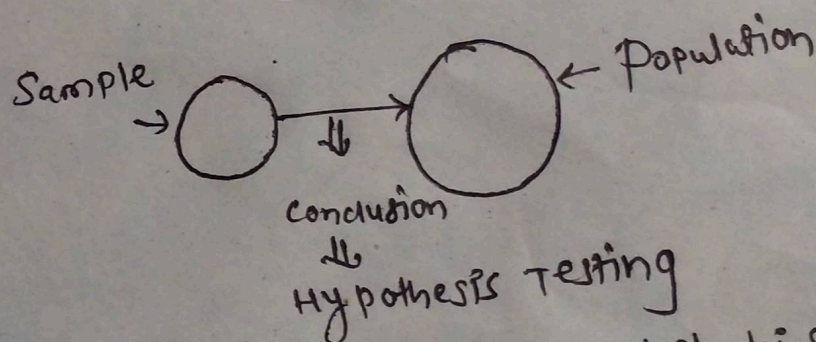 Sample
Population
Conclusion
Hypothesis Testing